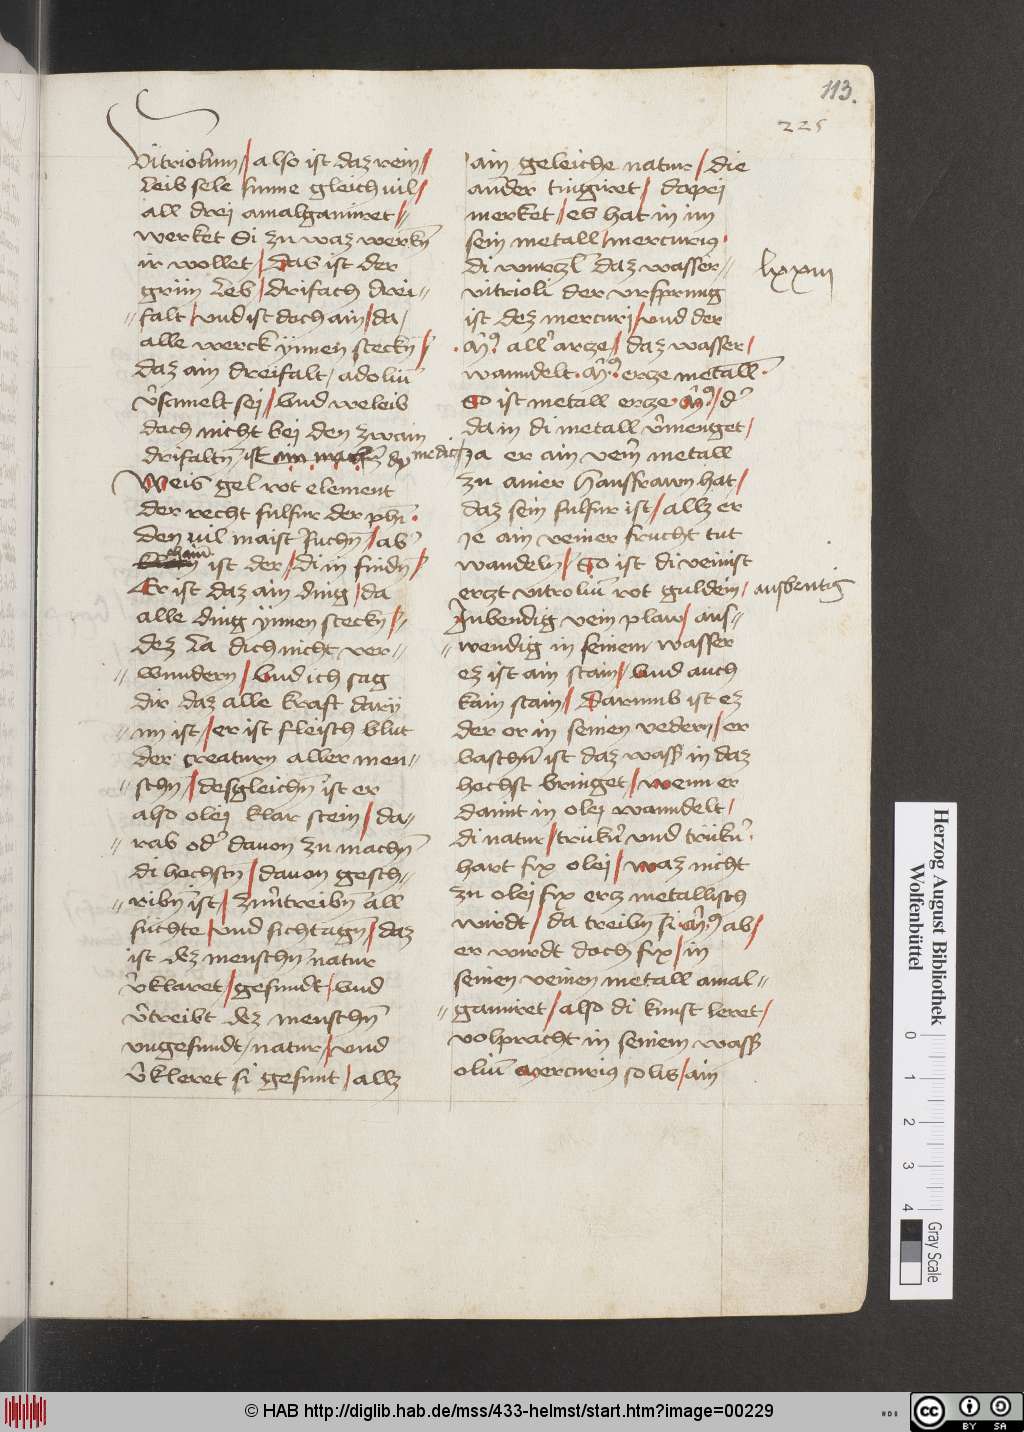 113.
225
Vitriolum / also ist daz rein /
Leib sele sinne gleich vil /
all drei amalgamiret /
werket Si zu waz werkn̄
ir wollet / Das ist der
grün Leb / drifach drei-
falt / vnd ist doch ain / da /
alle werck ynnen steckn̄ /
daz ain dreifalt / adoliū
v̄samelt sei / vnd weleib
doch nicht bei den zwain
drifaltn̄ ist
medic
Weis gel rot element
der recht sulfur der phi .
den vil maist suchn̄ / ab'
chain ist der / di in findn̄ /
Er ist daz ain ding / da
alle ding ynnen steckn̄ /
dez La dich nicht ver-
wundern / vnd ich sag
dir daz alle kraft dary
nn ist / er ist fleisch blut
der creaturn aller men-
schn / desgleichn̄ ist er
also olej klar stein / da-
rab od' dauon zu machn̄
di hochstn̄ / dauon gesch-
ribn̄ ist / treibn̄ all
suchte / vnd sichtagn̄ / daz
ist dez menschn̄ natur
v̄klaret / gesundt / vnd
v̄treibt dez menschn̄
vngesundt / natur / vnd
v̄kleret si gesunt / allz
ain geleiche natur / die
ander tinguret / dapei
merket / es hat in im
sein metall / mercurius .
di wurtzl daz wasser
lxxiii
vitrioli der vrsprung
ist dez mercuri / vnd der
all' arcze / daz wasser /
wanndelt ercze metall .
So ist metall ercze / d'
da in di metall v̄menget /
Ja er ain metall
zu ainer haussfrawn hat /
daz sein sulfur ist / allz er
Je ain reiner frucht tut
wandeln / So ist di reinist
erczt vitroliū rot guldein / ausbentig
Inbendig rein plaw / aus-
wendig in seinem wasser
ez ist ain stain / vnd auch
kain stain / Darumb ist ez
der er in seinen vedern / er
baschn̄ ist daz wass' in daz
hochst bringet / wenn er
damit in olej wanndelt /
di natur / trükn̄ vnd trükn̄ .
hart fix olej / waz nicht
zu olej fix ercz metallisch
wirdt / da treibn̄ si ab /
er wirdt doch fix / in
seinen reinen metall amal-
gamiret / also di kunst leret /
volpracht in seinem wass'
oliū mercurius solis / ain
Herzog August Bibliothek
Wolfenbüttel
0 1 2 3 4
Gray Scale
© HAB http://diglib.hab.de/mss/433-helmst/start.htm?image=00229
HAB
cc BY SA